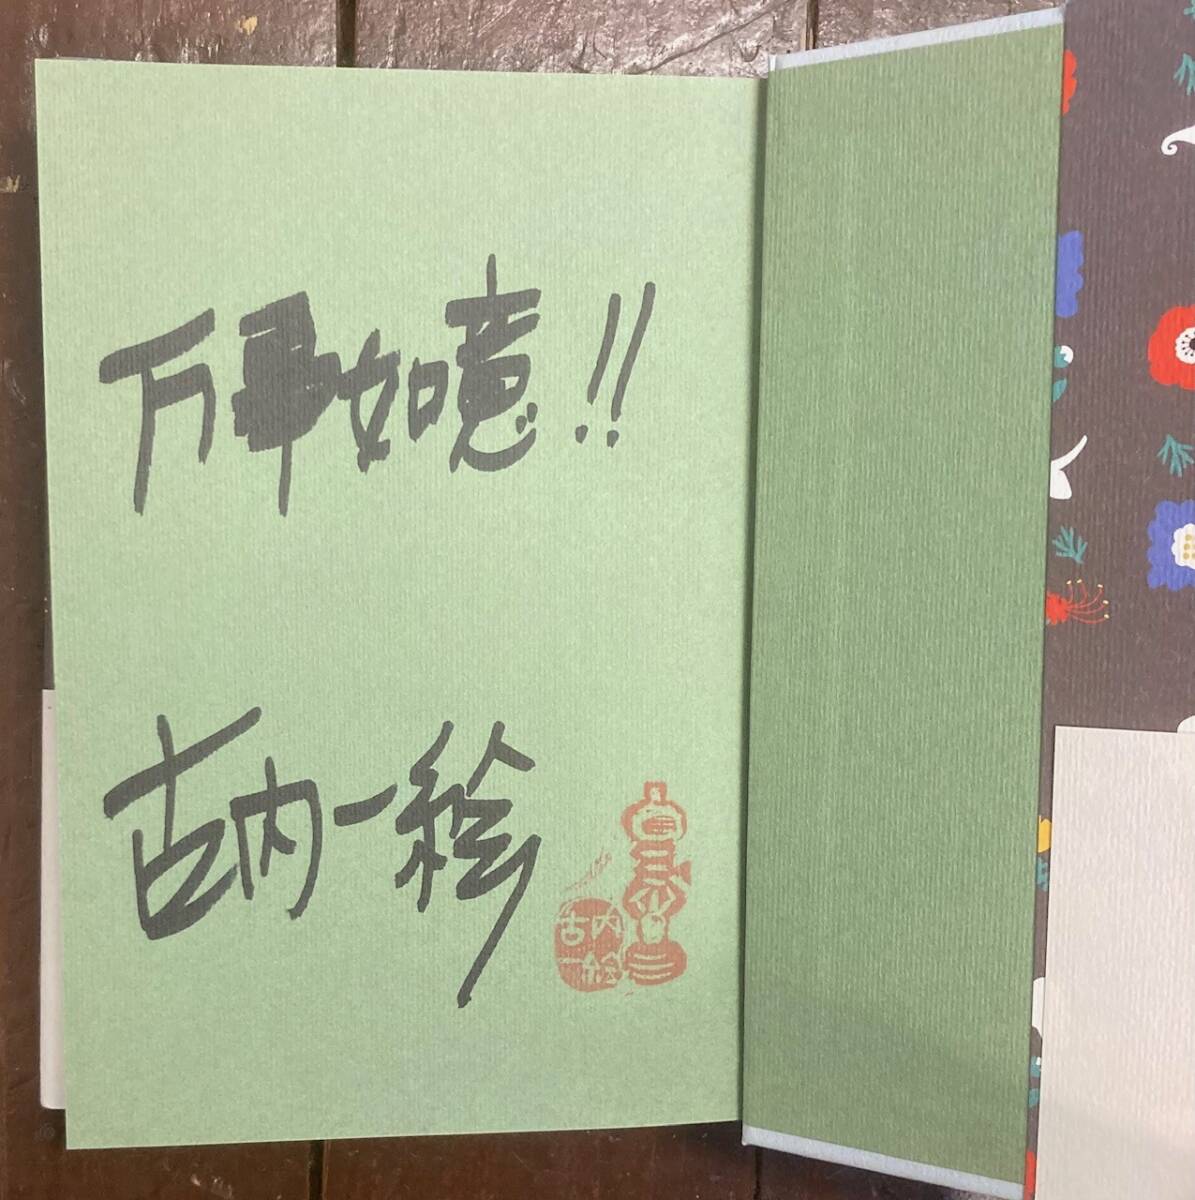 万事如意!!
古内一絵
古内
一絵